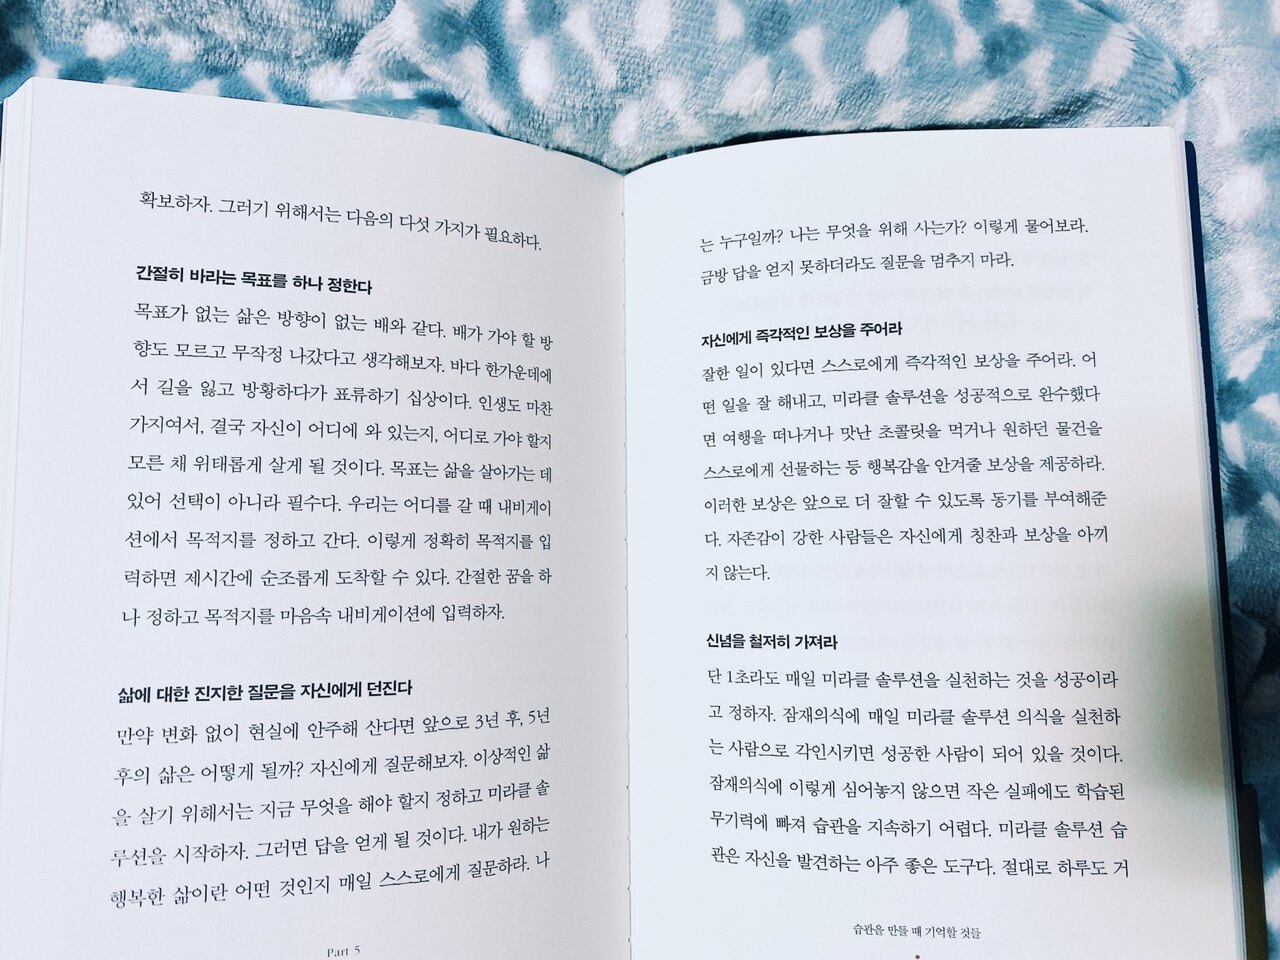 확보하자. 그러기 위해서는 다음의 다섯 가지가 필요하다.
간절히 바라는 목표를 하나 정한다
목표가 없는 삶은 방향이 없는 배와 같다. 배가 가야 할 방
향도 모르고 무작정 나갔다고 생각해보자. 바다 한가운데에
서 길을 잃고 방황하다가 표류하기 십상이다. 인생도 마찬
가지여서, 결국 자신이 어디에 와 있는지, 어디로 가야 할지
모른 채 위태롭게 살게 될 것이다. 목표는 삶을 살아가는 데
있어 선택이 아니라 필수다. 우리는 어디를 갈 때 내비게이
션에서 목적지를 정하고 간다. 이렇게 정확히 목적지를 입
력하면 제시간에 순조롭게 도착할 수 있다. 간절한 꿈을 하
나 정하고 목적지를 마음속 내비게이션에 입력하자.
삶에 대한 진지한 질문을 자신에게 던진다
만약 변화 없이 현실에 안주해 산다면 앞으로 3년 후, 5년
후의 삶은 어떻게 될까? 자신에게 질문해보자. 이상적인 삶
을 살기 위해서는 지금 무엇을 해야 할지 정하고 미라클 솔
루션을 시작하자. 그러면 답을 얻게 될 것이다. 내가 원하는
행복한 삶이란 어떤 것인지 매일 스스로에게 질문하라. 나
Part 5
는 누구일까? 나는 무엇을 위해 사는가? 이렇게 물어보라.
금방 답을 얻지 못하더라도 질문을 멈추지 마라.
자신에게 즉각적인 보상을 주어라
잘한 일이 있다면 스스로에게 즉각적인 보상을 주어라. 어
떤 일을 잘 해내고, 미라클 솔루션을 성공적으로 완수했다
면 여행을 떠나거나 맛난 초콜릿을 먹거나 원하던 물건을
스스로에게 선물하는 등 행복감을 안겨줄 보상을 제공하라.
이러한 보상은 앞으로 더 잘할 수 있도록 동기를 부여해준
다. 자존감이 강한 사람들은 자신에게 칭찬과 보상을 아끼
지 않는다.
신념을 철저히 가져라
단 1초라도 매일 미라클 솔루션을 실천하는 것을 성공이라
고 정하자. 잠재의식에 매일 미라클 솔루션 의식을 실천하
는 사람으로 각인시키면 성공한 사람이 되어 있을 것이다.
잠재의식에 이렇게 심어놓지 않으면 작은 실패에도 학습된
무기력에 빠져 습관을 지속하기 어렵다. 미라클 솔루션 습
관은 자신을 발견하는 아주 좋은 도구다. 절대로 하루도 거
습관을 만들 때 기억할 것들